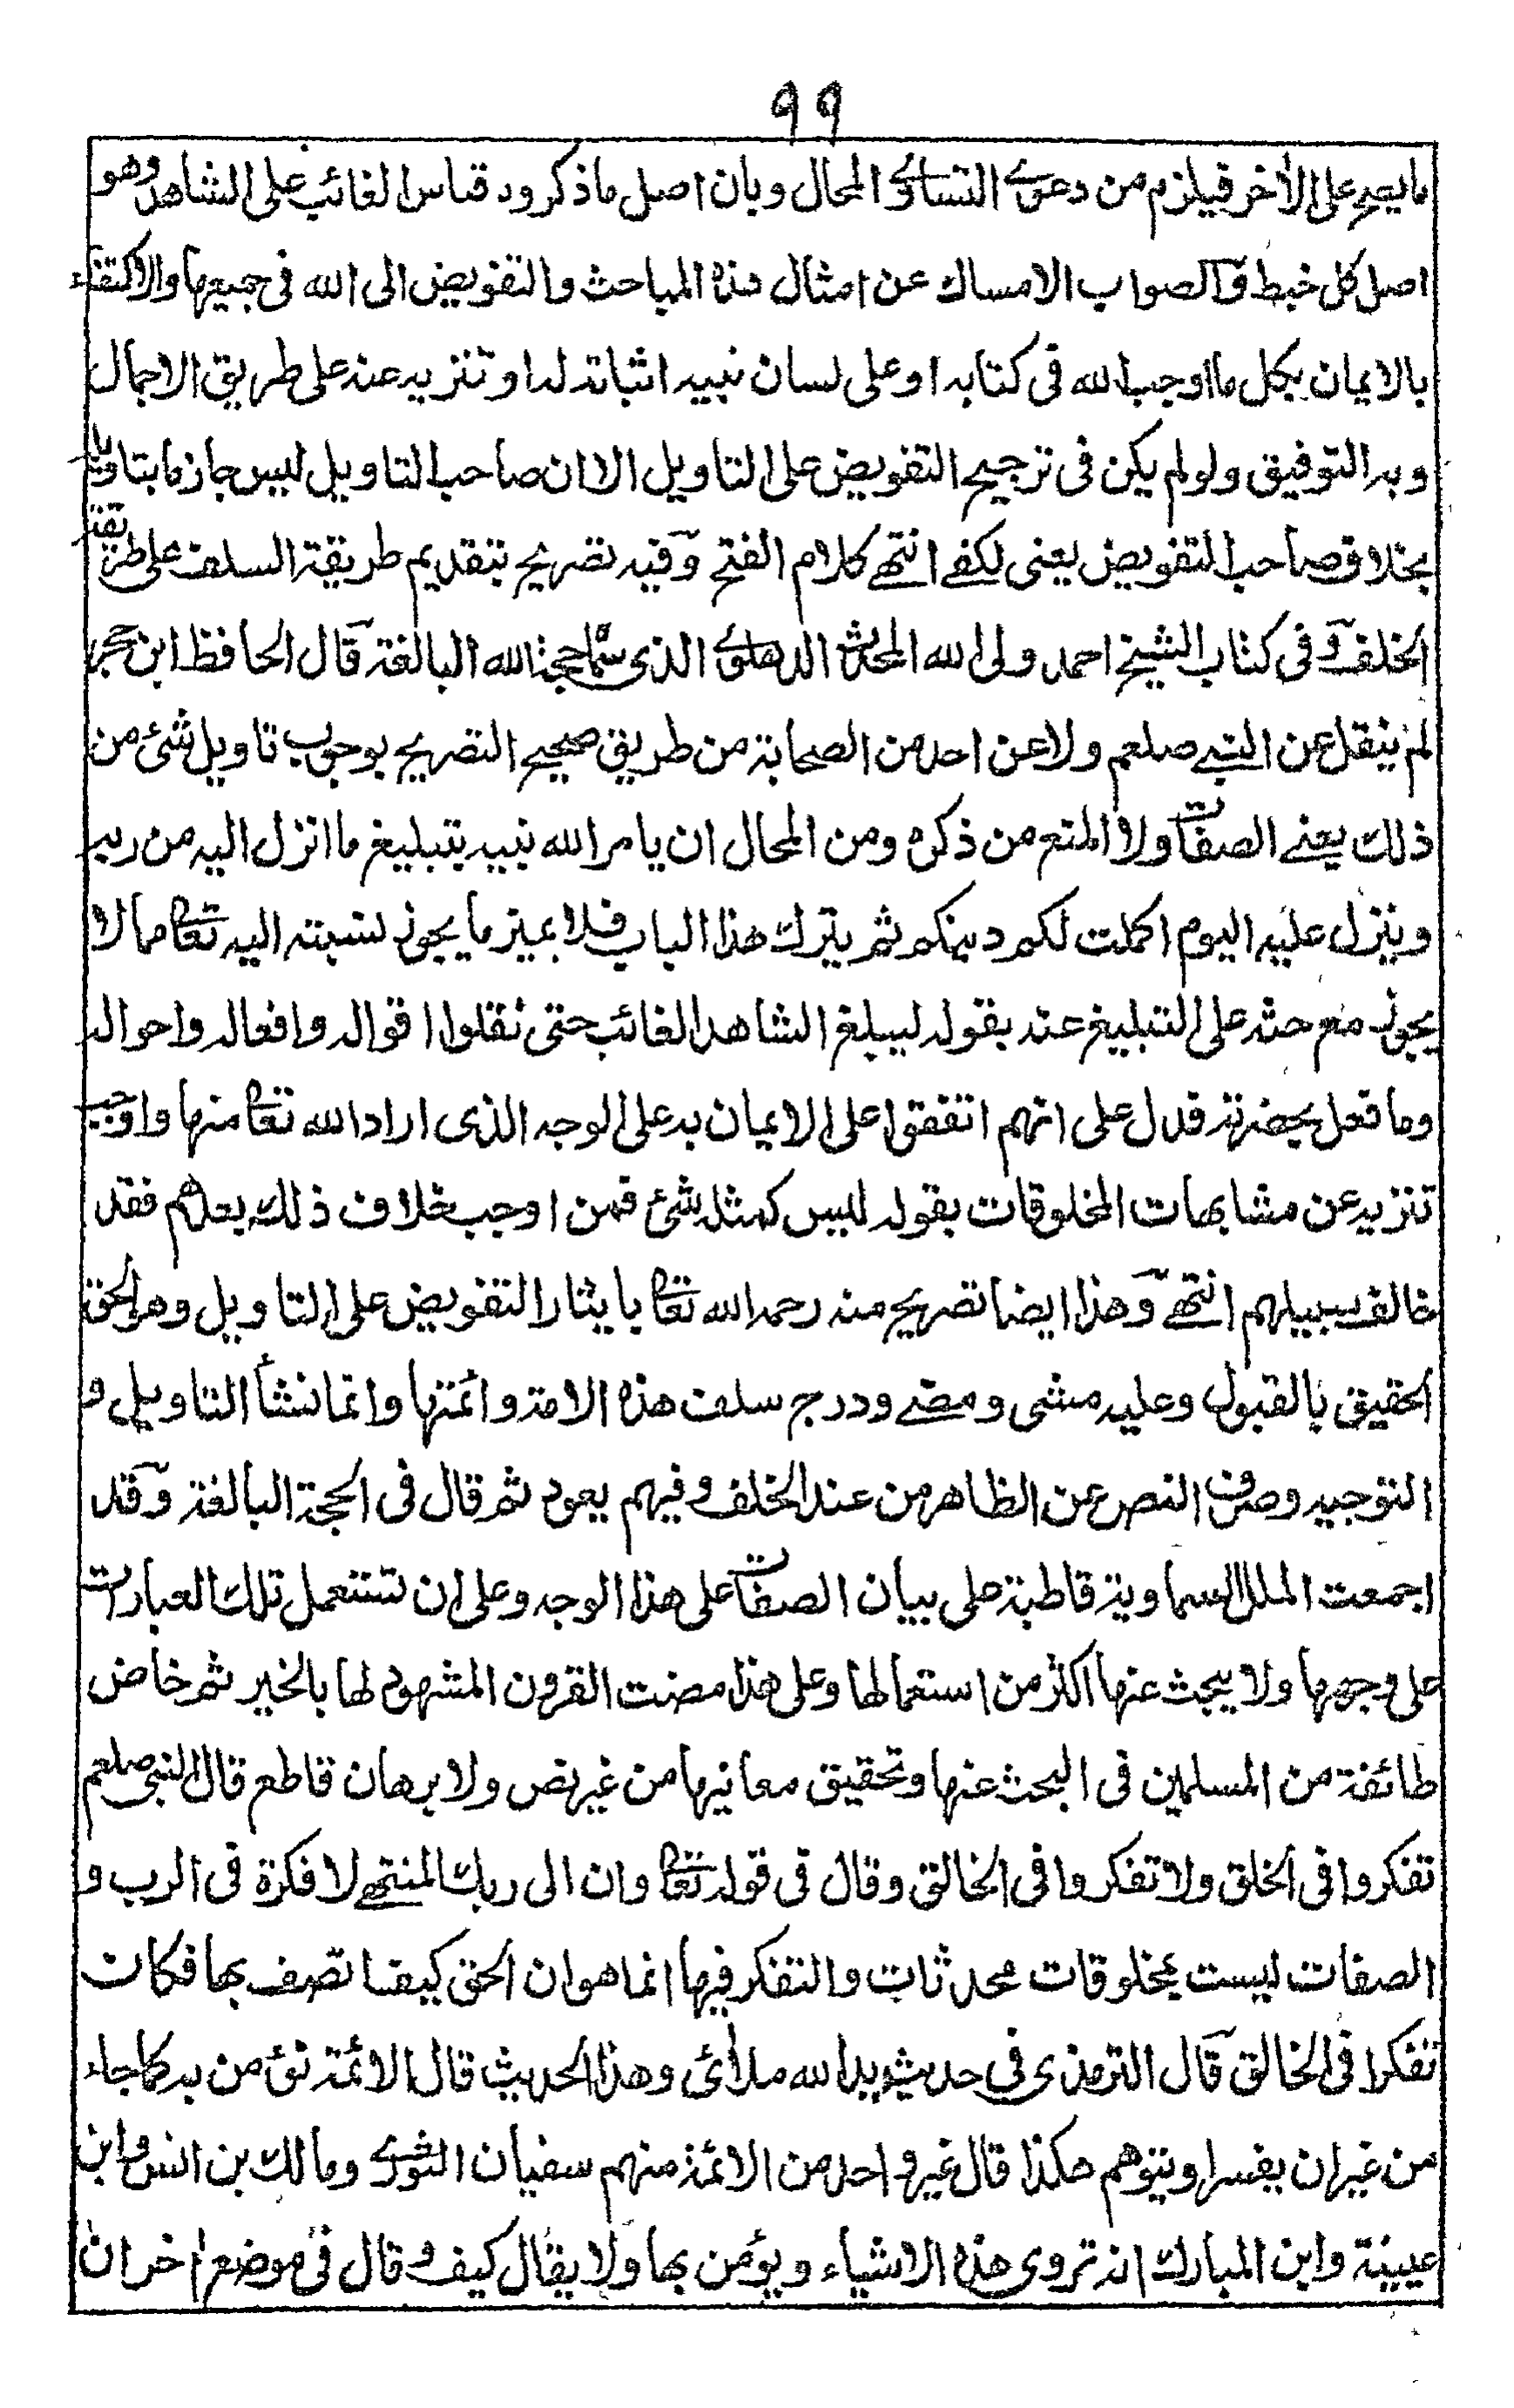 ٩٩
ما يصح على الأخر فيلزم من دعوى التساوي المحال وبان اصل ما ذكروه قياس الغائب على الشاهد وهو
اصل كل خبط والصواب الامساك عن امثال هذه المباحث والتفويض الى الله فى جميعها والاكتفاء
بالايمان بكل ما اوجب الله فى كتابه او على لسان نبيه اثباته له او تنزيه عنه على طريق الاجمال
وبه التوفيق ولو لم يكن فى ترجيح التفويض على التاويل الا ان صاحب التاويل ليس جازما بتاويله
بخلاف صاحب التفويض يعنى لكفى انتهى كلام الفتح وفيه تصريح بتقديم طريقة السلف على طريقة
الخلف وفى كتاب الشيخ احمد ولى الله المحدث الدهلوى الذى سماه حجة الله البالغة قال الحافظ ابن حجر
لم ينقل عن النبى صلعم ولا عن احد من الصحابة من طريق صحيح التصريح بوجوب تاويل شئ من
ذلك يعنى الصفات ولا المنع من ذكره ومن المحال ان يامر الله نبيه بتبليغ ما انزل اليه من ربه
وينزل عليه اليوم اكملت لكم دينكم ثم يترك هذا الباب فلا يميز ما يجوز نسبته اليه تعالى مما لا
يجوز مع حثه على التبليغ عنه بقوله ليبلغ الشاهد الغائب حتى نقلوا اقواله وافعاله واحواله
وما فعل بحضرته فدل على انهم اتفقوا على الايمان به على الوجه الذى اراد الله تعالى منها واوجب
تنزيه عن مشابهات المخلوقات بقوله ليس كمثله شئ فمن اوجب خلاف ذلك بعدهم فقد
خالف سبيلهم انتهى وهذا ايضا تصريح منه رحمه الله تعالى بايثار التفويض على التاويل وهو الحق
الحقيق بالقبول وعليه مشى ومضى ودرج سلف هذه الامة وائمتها وانما نشأ التاويل و
التوجيه وصرف النص عن الظاهر من عند الخلف وفيهم يعود ثم قال فى الحجة البالغة وقد
اجمعت الملل السماوية قاطبة على بيان الصفات على هذا الوجه وعلى ان تستعمل تلك العبارات
على وجهها ولا يبحث عنها اكثر من استعمالها وعلى هذا مضت القرون المشهود لها بالخير ثم خاض
طائفة من المسلمين فى البحث عنها وتحقيق معانيها من غير نص ولا برهان قاطع قال النبى صلعم
تفكروا فى الخلق ولا تفكروا فى الخالق وقال فى قوله تعالى وان الى ربك المنتهى لا فكرة فى الرب و
الصفات ليست بمخلوقات محدثات والتفكر فيها انما هو ان الحق كيف اتصف بها فكان
تفكرا فى الخالق قال الترمذى فى حديث يد الله ملأى وهذا الحديث قال الائمة نؤمن به كما جاء
من غير ان يفسر او يتوهم هكذا قال غير واحد من الائمة منهم سفيان الثورى ومالك بن انس وابن
عيينة وابن المبارك انه تروى هذه الاشياء ويؤمن بها ولا يقال كيف وقال فى موضع اخر ان